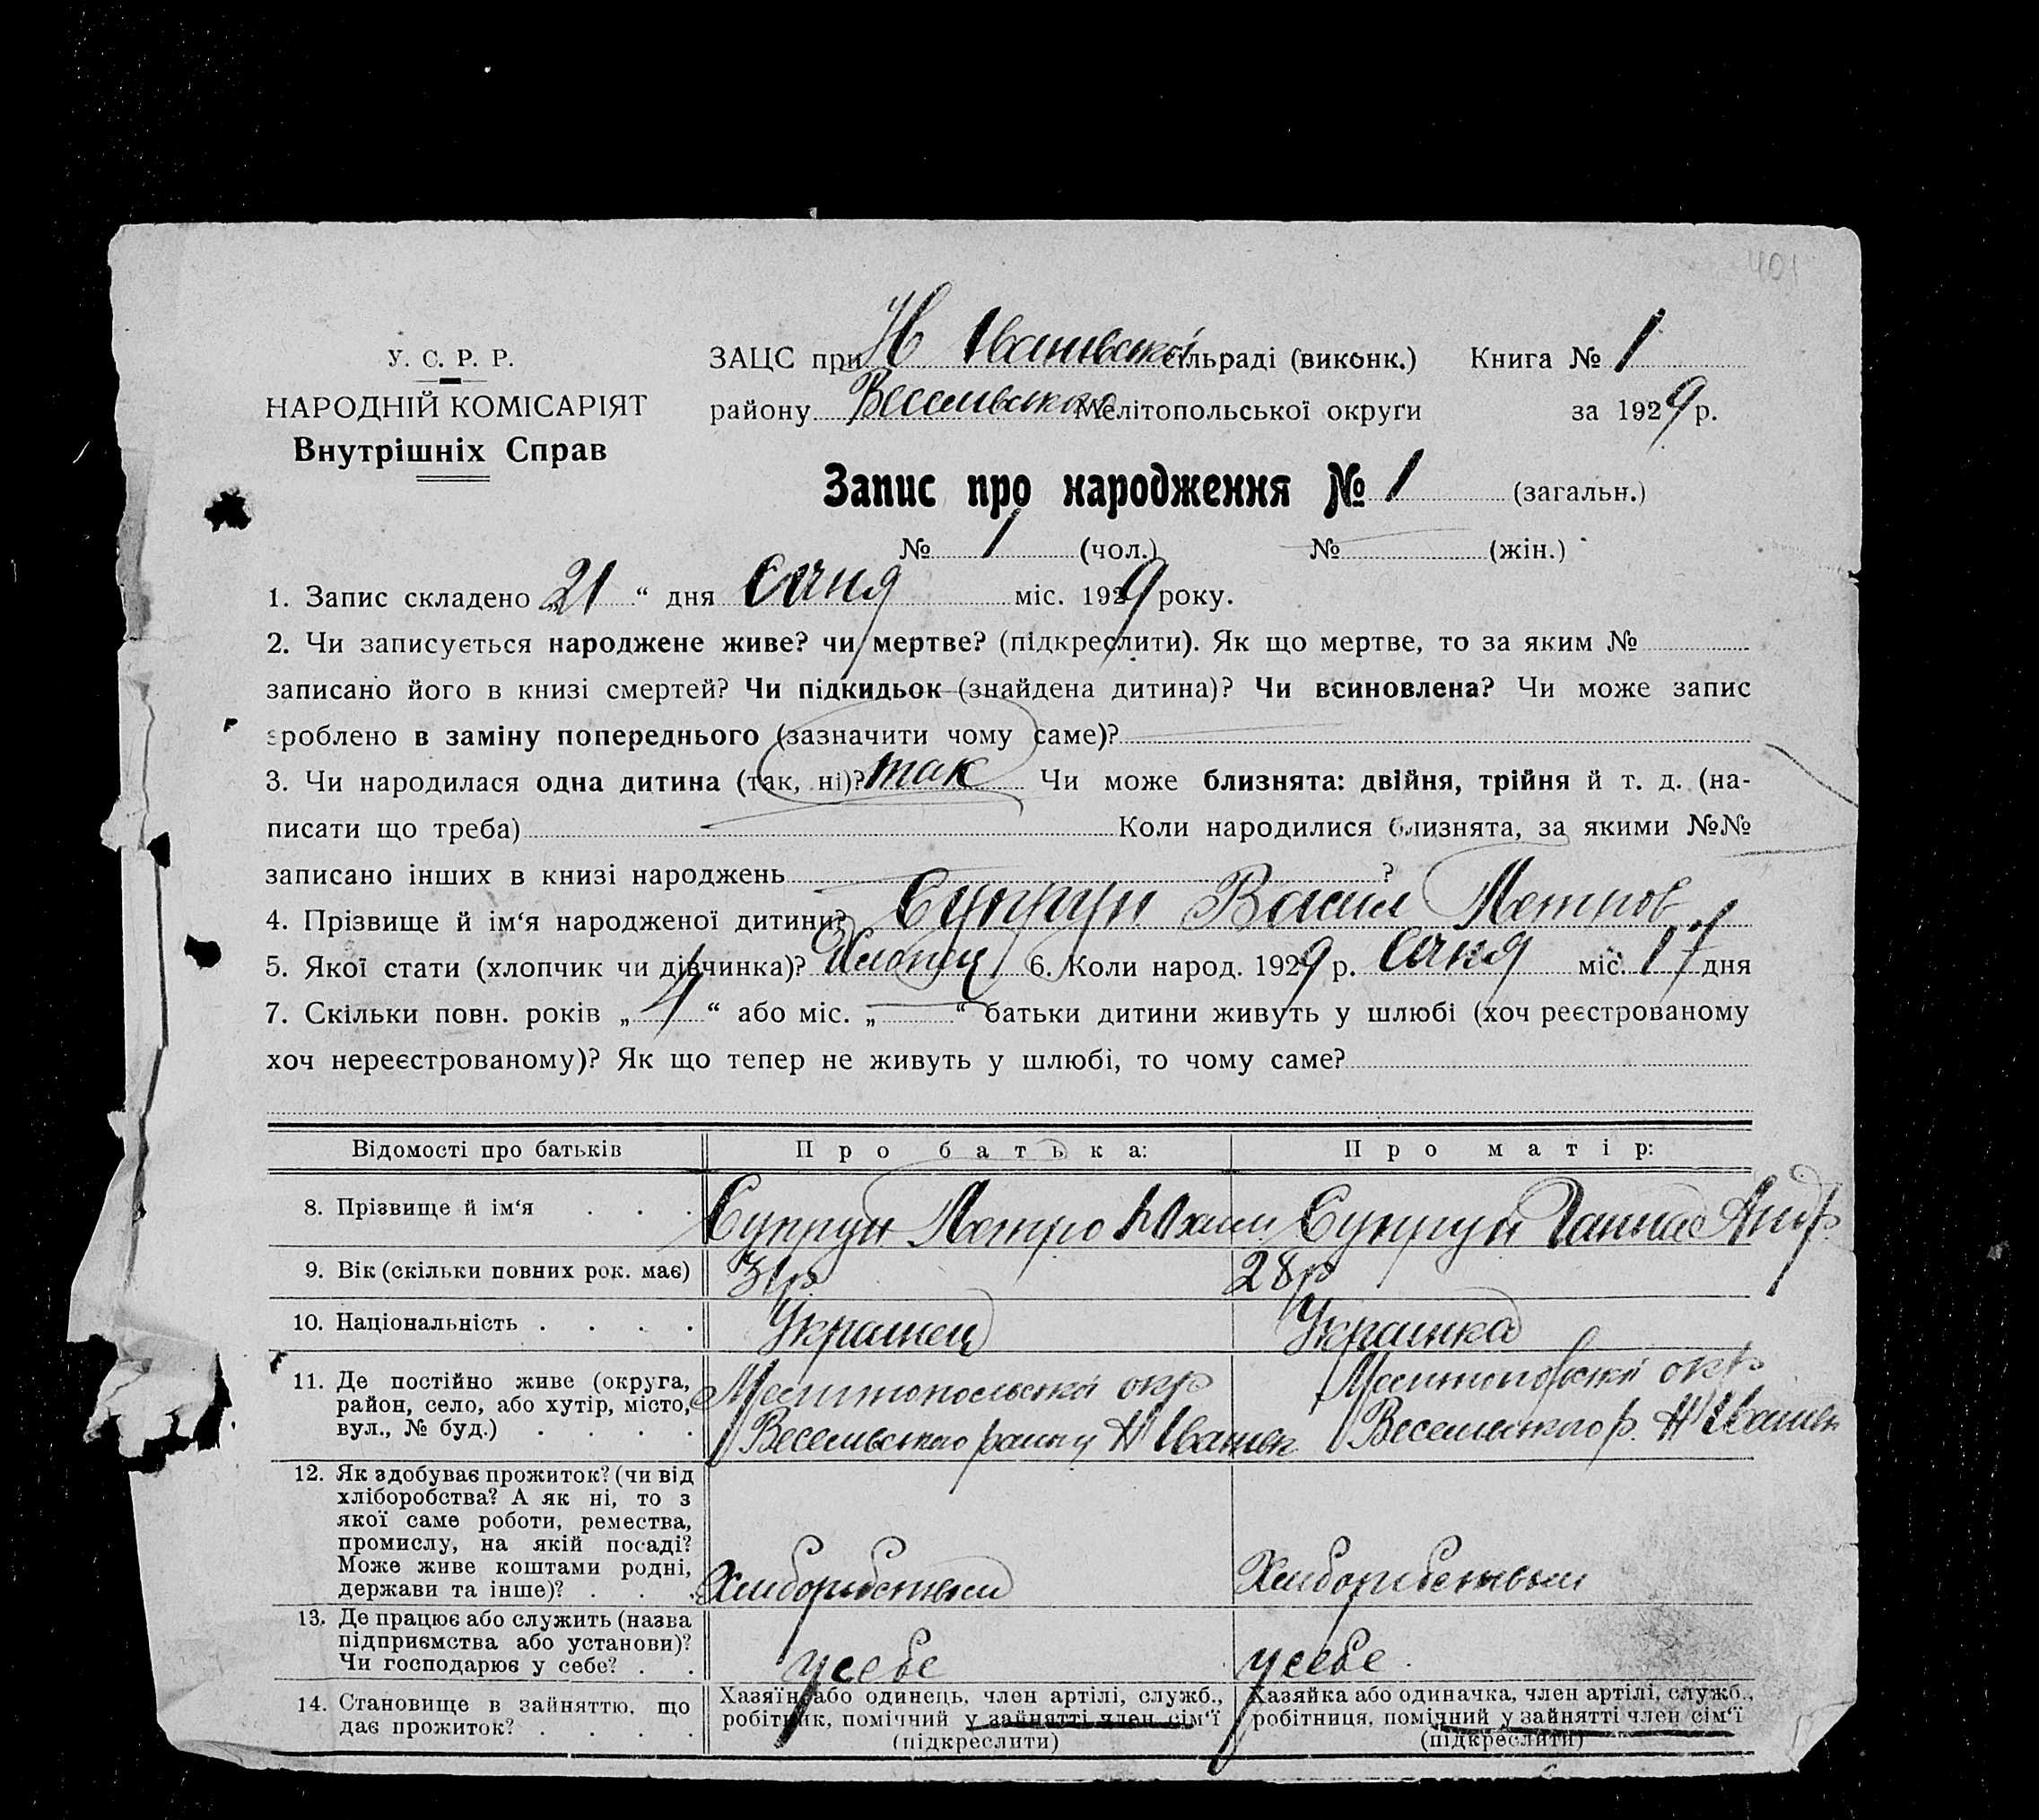 401
У. С. Р. Р.
НАРОДНІЙ КОМІСАРІЯТ
Внутрішніх Справ
ЗАЦС при Н Іванівської сільраді (виконк.) Книга № 1
району Веселівського Мелітопольської округи за 1929 р.
Запис про народження № 1 (загальн.)
№ 1 (чол.) № (жін.)
1. Запис складено „21“ дня Січня міс. 1929 року.
2. Чи записується народжене живе? чи мертве? (підкреслити). Як що мертве, то за яким №
записано його в книзі смертей? Чи підкидьок (знайдена дитина)? Чи всиновлена? Чи може запис
зроблено в заміну попереднього (зазначити чому саме)?
3. Чи народилася одна дитина (так, ні)? так Чи може близнята: двійня, трійня й т. д. (на-
писати що треба) Коли народилися близнята, за якими №№
записано інших в книзі народжень ?
4. Прізвище й ім‘я народженої дитини? Супрун Васил Петров
5. Якої стати (хлопчик чи дівчинка)? Хлопец 6. Коли народ. 1929 р. Січня міс. 17 дня
7. Скільки повн. років „ “ або міс. „—“ батьки дитини живуть у шлюбі (хоч реєстрованому
хоч нереєстрованому)? Як що тепер не живуть у шлюбі, то чому саме?
Відомості про батьків Про батька: Про матір:
8. Прізвище й ім‘я . . . Супрун Петро Юхим Супрун Ганна Андр
9. Вік (скільки повних рок. має) 31 р 28 р
10. Національність . . . . Украинец Украинка
11. Де постійно живе (округа, Мелитопольскої окр Мелитопольскої окр
район, село, або хутір, місто,
вул., № буд.) . . . . Веселівського району Н Іванівк Веселивського р. Н Іванівк
12. Як здобуває прожиток? (чи від
хліборобства? А як ні, то з
якої саме роботи, ремества,
промислу, на якій посаді?
Може живе коштами родні,
держави та інше)? . . . Хлиборибством Хлиборибством
13. Де працює або служить (назва
підприємства або установи)?
Чи господарює у себе? . . у себе у себе
14. Становище в зайняттю, що Хазяїн або одинець, член артілі, служб., Хазяйка або одиначка, член артілі, служб.,
дає прожиток? . . . . робітник, помічний у зайнятті член сім‘ї робітниця, помічний у зайнятті член сім‘ї
(підкреслити) (підкреслити)